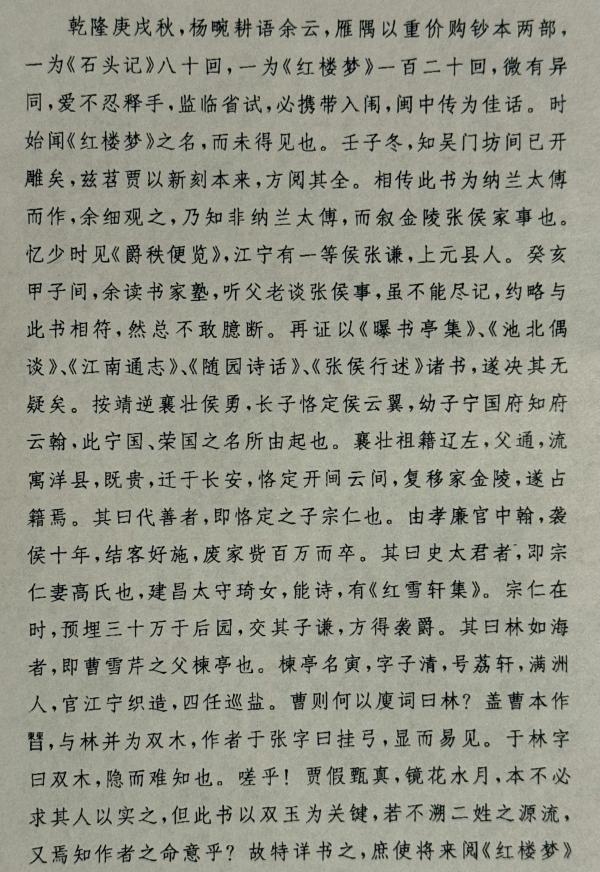 乾隆庚戌秋，杨畹耕语余云，雁隅以重价购钞本两部，
一为《石头记》八十回，一为《红楼梦》一百二十回，微有异
同，爱不忍释手，监临省试，必携带入闱，闽中传为佳话。时
始闻《红楼梦》之名，而未得见也。壬子冬，知吴门坊间已开
雕矣，兹苕贾以新刻本来，方阅其全。相传此书为纳兰太傅
而作，余细观之，乃知非纳兰太傅，而叙金陵张侯家事也。
忆少时见《爵秩便览》，江宁有一等侯张谦，上元县人。癸亥
甲子间，余读书家塾，听父老谈张侯事，虽不能尽记，约略与
此书相符，然总不敢臆断。再证以《曝书亭集》、《池北偶
谈》、《江南通志》、《随园诗话》、《张侯行述》诸书，遂决其无
疑矣。按靖逆襄壮侯勇，长子恪定侯云翼，幼子宁国府知府
云翰，此宁国、荣国之名所由起也。襄壮祖籍辽左，父通，流
寓洋县，既贵，迁于长安，恪定开阃云间，复移家金陵，遂占
籍焉。其曰代善者，即恪定之子宗仁也。由孝廉官中翰，袭
侯十年，结客好施，废家赀百万而卒。其曰史太君者，即宗
仁妻高氏也，建昌太守琦女，能诗，有《红雪轩集》。宗仁在
时，预埋三十万于后园，交其子谦，方得袭爵。其曰林如海
者，即曹雪芹之父楝亭也。楝亭名寅，字子清，号荔轩，满洲
人，官江宁织造，四任巡盐。曹则何以廋词曰林？盖曹本作
𣍘，与林并为双木，作者于张字曰挂弓，显而易见。于林字
曰双木，隐而难知也。嗟乎！贾假甄真，镜花水月，本不必
求其人以实之，但此书以双玉为关键，若不溯二姓之源流，
又焉知作者之命意乎？故特详书之，庶使将来阅《红楼梦》